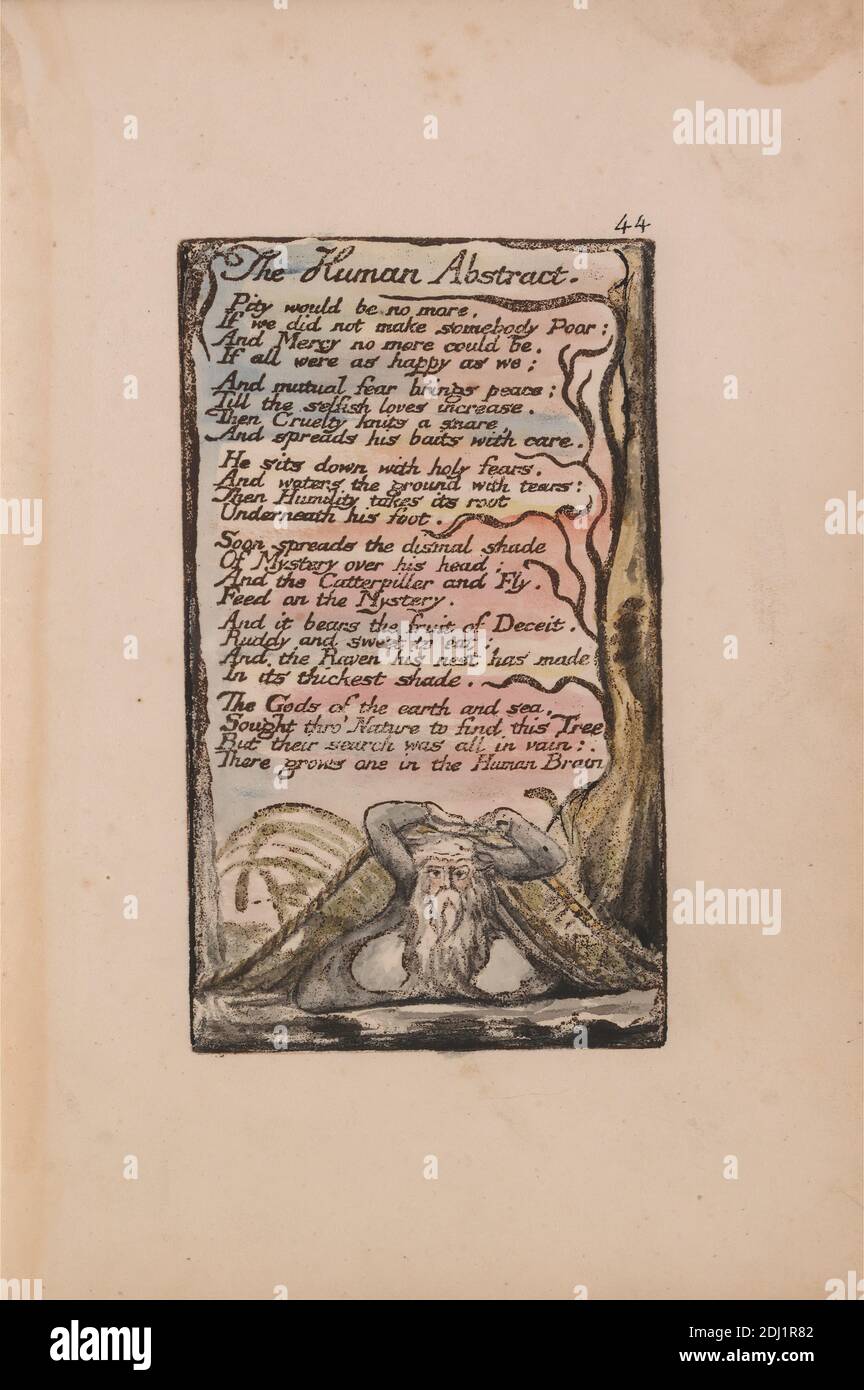 44
The Human Abstract.
Pity would be no more,
If we did not make somebody Poor:
And Mercy no more could be.
If all were as happy as we;
And mutual fear brings peace;
Till the selfish loves increase.
Then Cruelty knits a snare,
And spreads his baits with care.
He sits down with holy fears.
And waters the ground with tears:
Then Humility takes its root
Underneath his foot.
Soon spreads the dismal shade
Of Mystery over his head;
And the Catterpiller and Fly.
Feed on the Mystery.
And it bears the fruit of Deceit.
Ruddy and sweet to eat;
And the Raven his nest has made
In its thickest shade.
The Gods of the earth and sea,
Sought thro' Nature to find this Tree
But their search was all in vain:
There grows one in the Human Brain
alamy
a
alamy
Image ID: 2DJ1R82
www.alamy.com